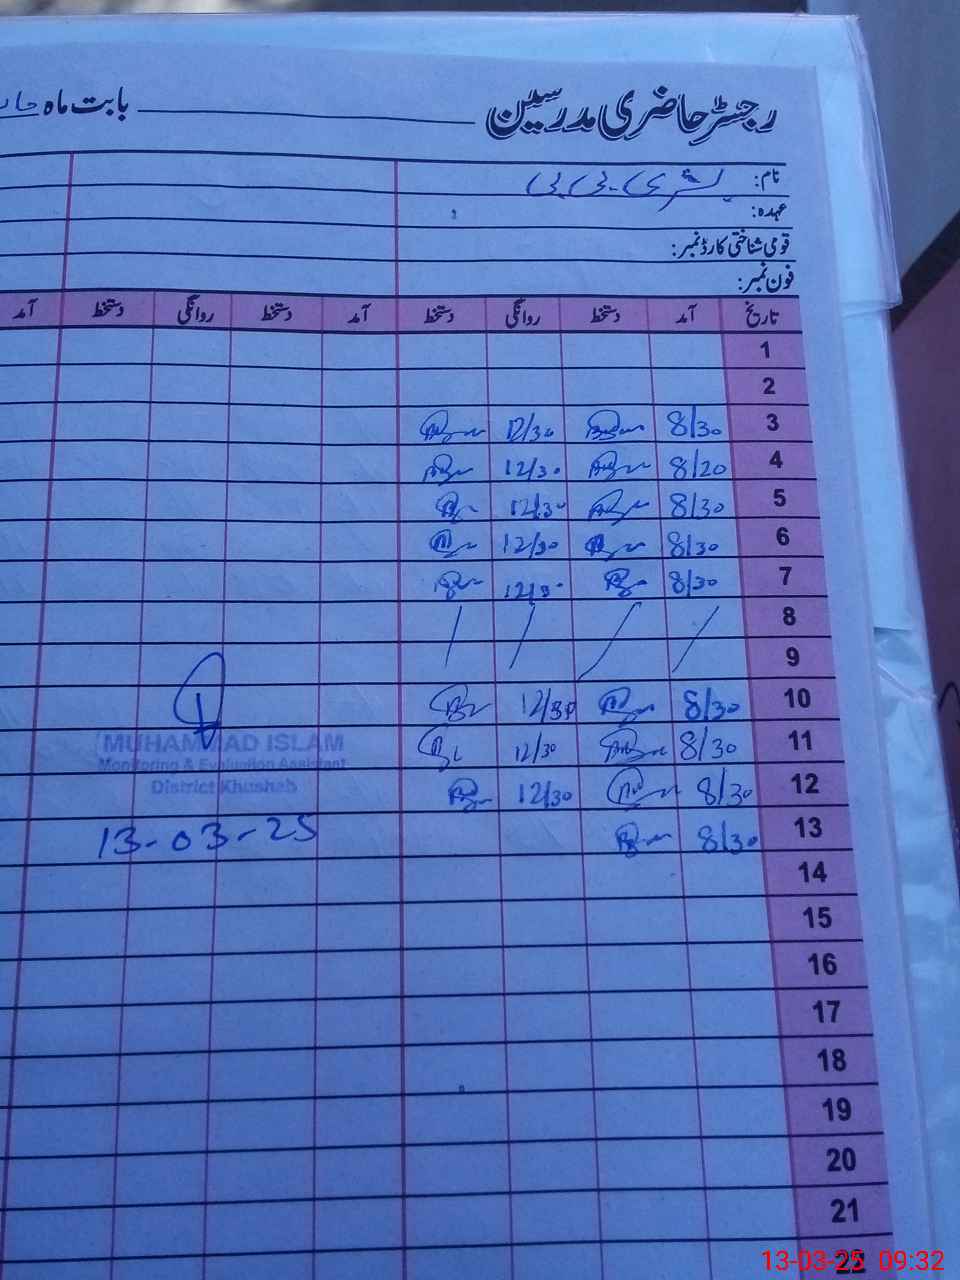 رجسٹر حاضری مدرسین بابت ماہ
نام: بشریٰ بی بی
عہدہ:
قومی شناختی کارڈ نمبر:
فون نمبر:
تاریخ آمد دستخط روانگی دستخط آمد دستخط روانگی دستخط آمد
1
2
3 8/30 12/30
4 8/20 12/30
5 8/30 12/30
6 8/30 12/30
7 8/30 12/30
8
9
10 8/30 12/30
11 8/30 12/30
MUHAMMAD ISLAM
Monitoring & Evaluation Assistant
12 8/30 12/30
District Khushab
13 8/30
13-03-25
14
15
16
17
18
19
20
21
22
13-03-25 09:32